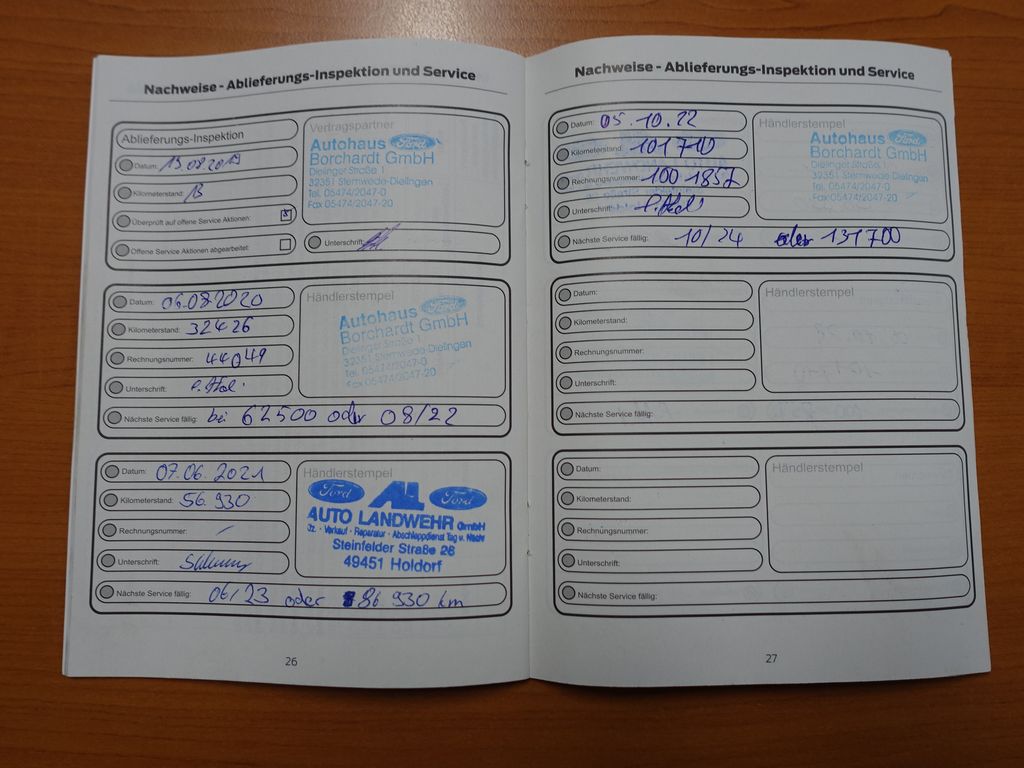 Nachweise - Ablieferungs-Inspektion und Service
Ablieferungs-Inspektion
Datum: 13.08.2019
Kilometerstand: 13
Überprüft auf offene Service Aktionen: x
Offene Service Aktionen abgearbeitet:
Vertragspartner
Autohaus Ford
Borchardt GmbH
Dielinger Straße 1
32351 Stemwede-Dielingen
Tel. 05474/2047-0
Fax 05474/2047-20
Unterschrift:
Datum: 06.08.2020
Kilometerstand: 32426
Rechnungsnummer: 44049
Unterschrift:
Nächste Service fällig: bei 62500 oder 08/22
Händlerstempel
Autohaus Ford
Borchardt GmbH
Dielinger Straße 1
32351 Stemwede-Dielingen
Tel. 05474/2047-0
Fax 05474/2047-20
Datum: 07.06.2021
Kilometerstand: 56.930
Rechnungsnummer: -
Unterschrift:
Nächste Service fällig: 06/23 oder 86 930 km
Händlerstempel
Ford AL Ford
AUTO LANDWEHR GmbH
Kfz. - Verkauf - Reparatur - Abschleppdienst Tag u. Nacht
Steinfelder Straße 26
49451 Holdorf
26
Nachweise - Ablieferungs-Inspektion und Service
Datum: 05.10.22
Kilometerstand: 101710
Rechnungsnummer: 100 1857
Unterschrift:
Nächste Service fällig: 10/24 oder 131700
Händlerstempel
Autohaus Ford
Borchardt GmbH
Dielinger Straße 1
32351 Stemwede-Dielingen
Tel. 05474/2047-0
Fax 05474/2047-20
Datum:
Kilometerstand:
Rechnungsnummer:
Unterschrift:
Nächste Service fällig:
Händlerstempel
Datum:
Kilometerstand:
Rechnungsnummer:
Unterschrift:
Nächste Service fällig:
Händlerstempel
27